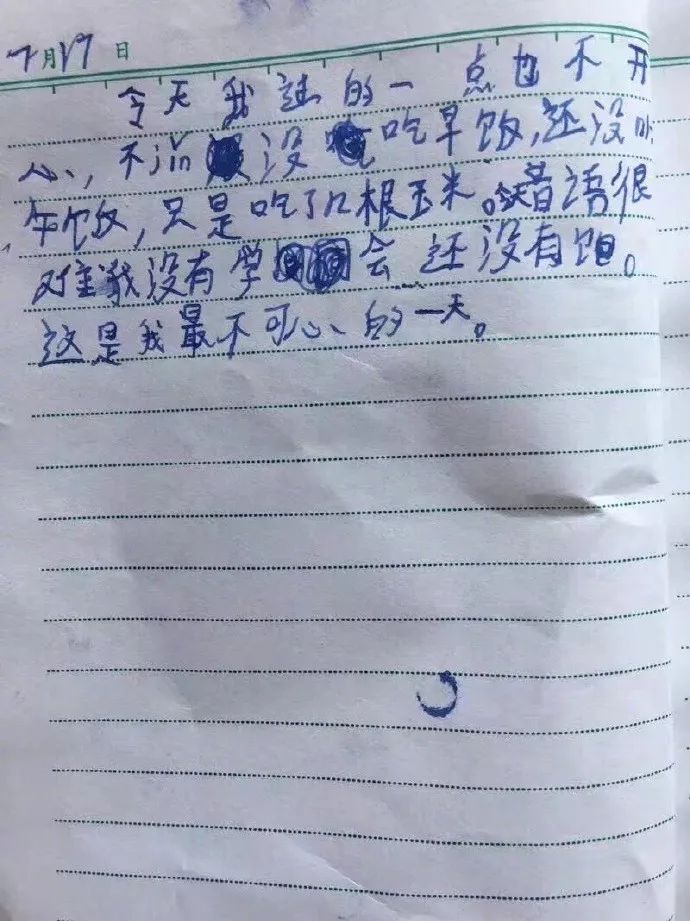 7月17日
今天我过的一点也不开
心,不仅没吃早饭,还没吃
午饭,只是吃了几根玉米。
很
难我没有学会还没有饱。
这是我最不可心的一天。